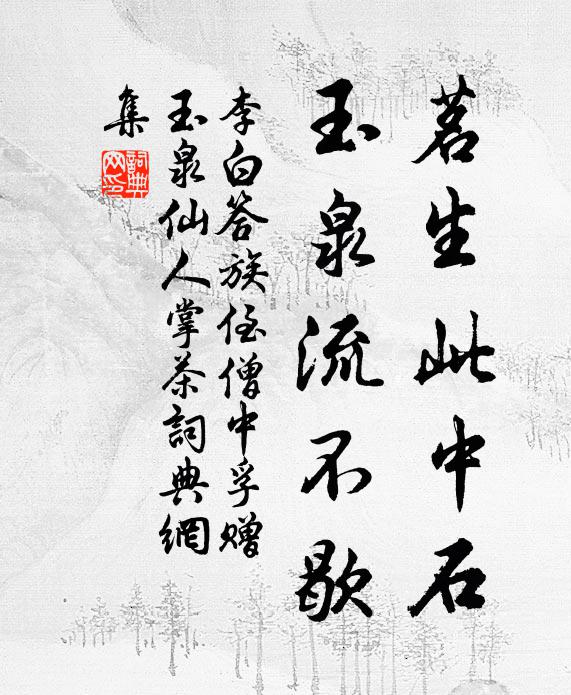 茗生此中石
玉泉流不歇
李白答族侄僧中孚赠
玉泉仙人掌茶詞典網
集
詞典网印